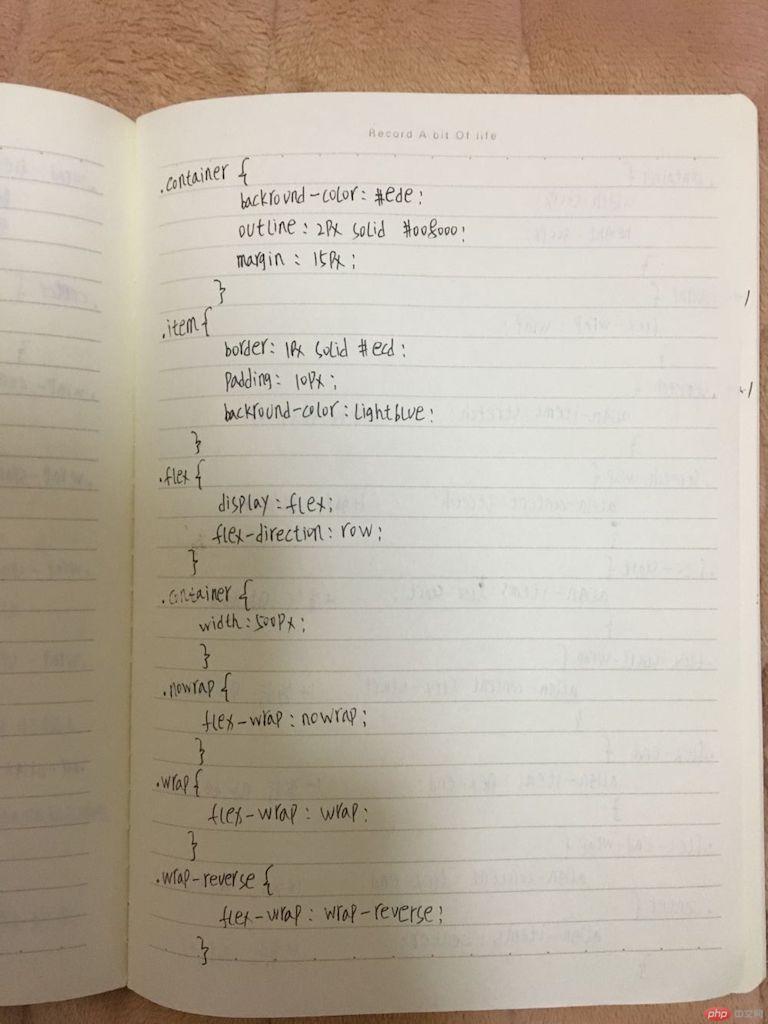 Record A bit Of life
.container {
backround-color: #ede;
outline: 2Px solid #008000;
margin: 15Px;
}
.item{
border: 1Px solid #ecd;
Padding: 10Px;
backround-color: Lightblue;
}
.flex{
display: flex;
flex-direction: row;
}
.container {
width: 500Px;
}
.nowrap {
flex-wrap: nowrap;
}
.wrap {
flex-wrap: wrap;
}
.wrap-reverse {
flex-wrap: wrap-reverse;
}
php 中文网